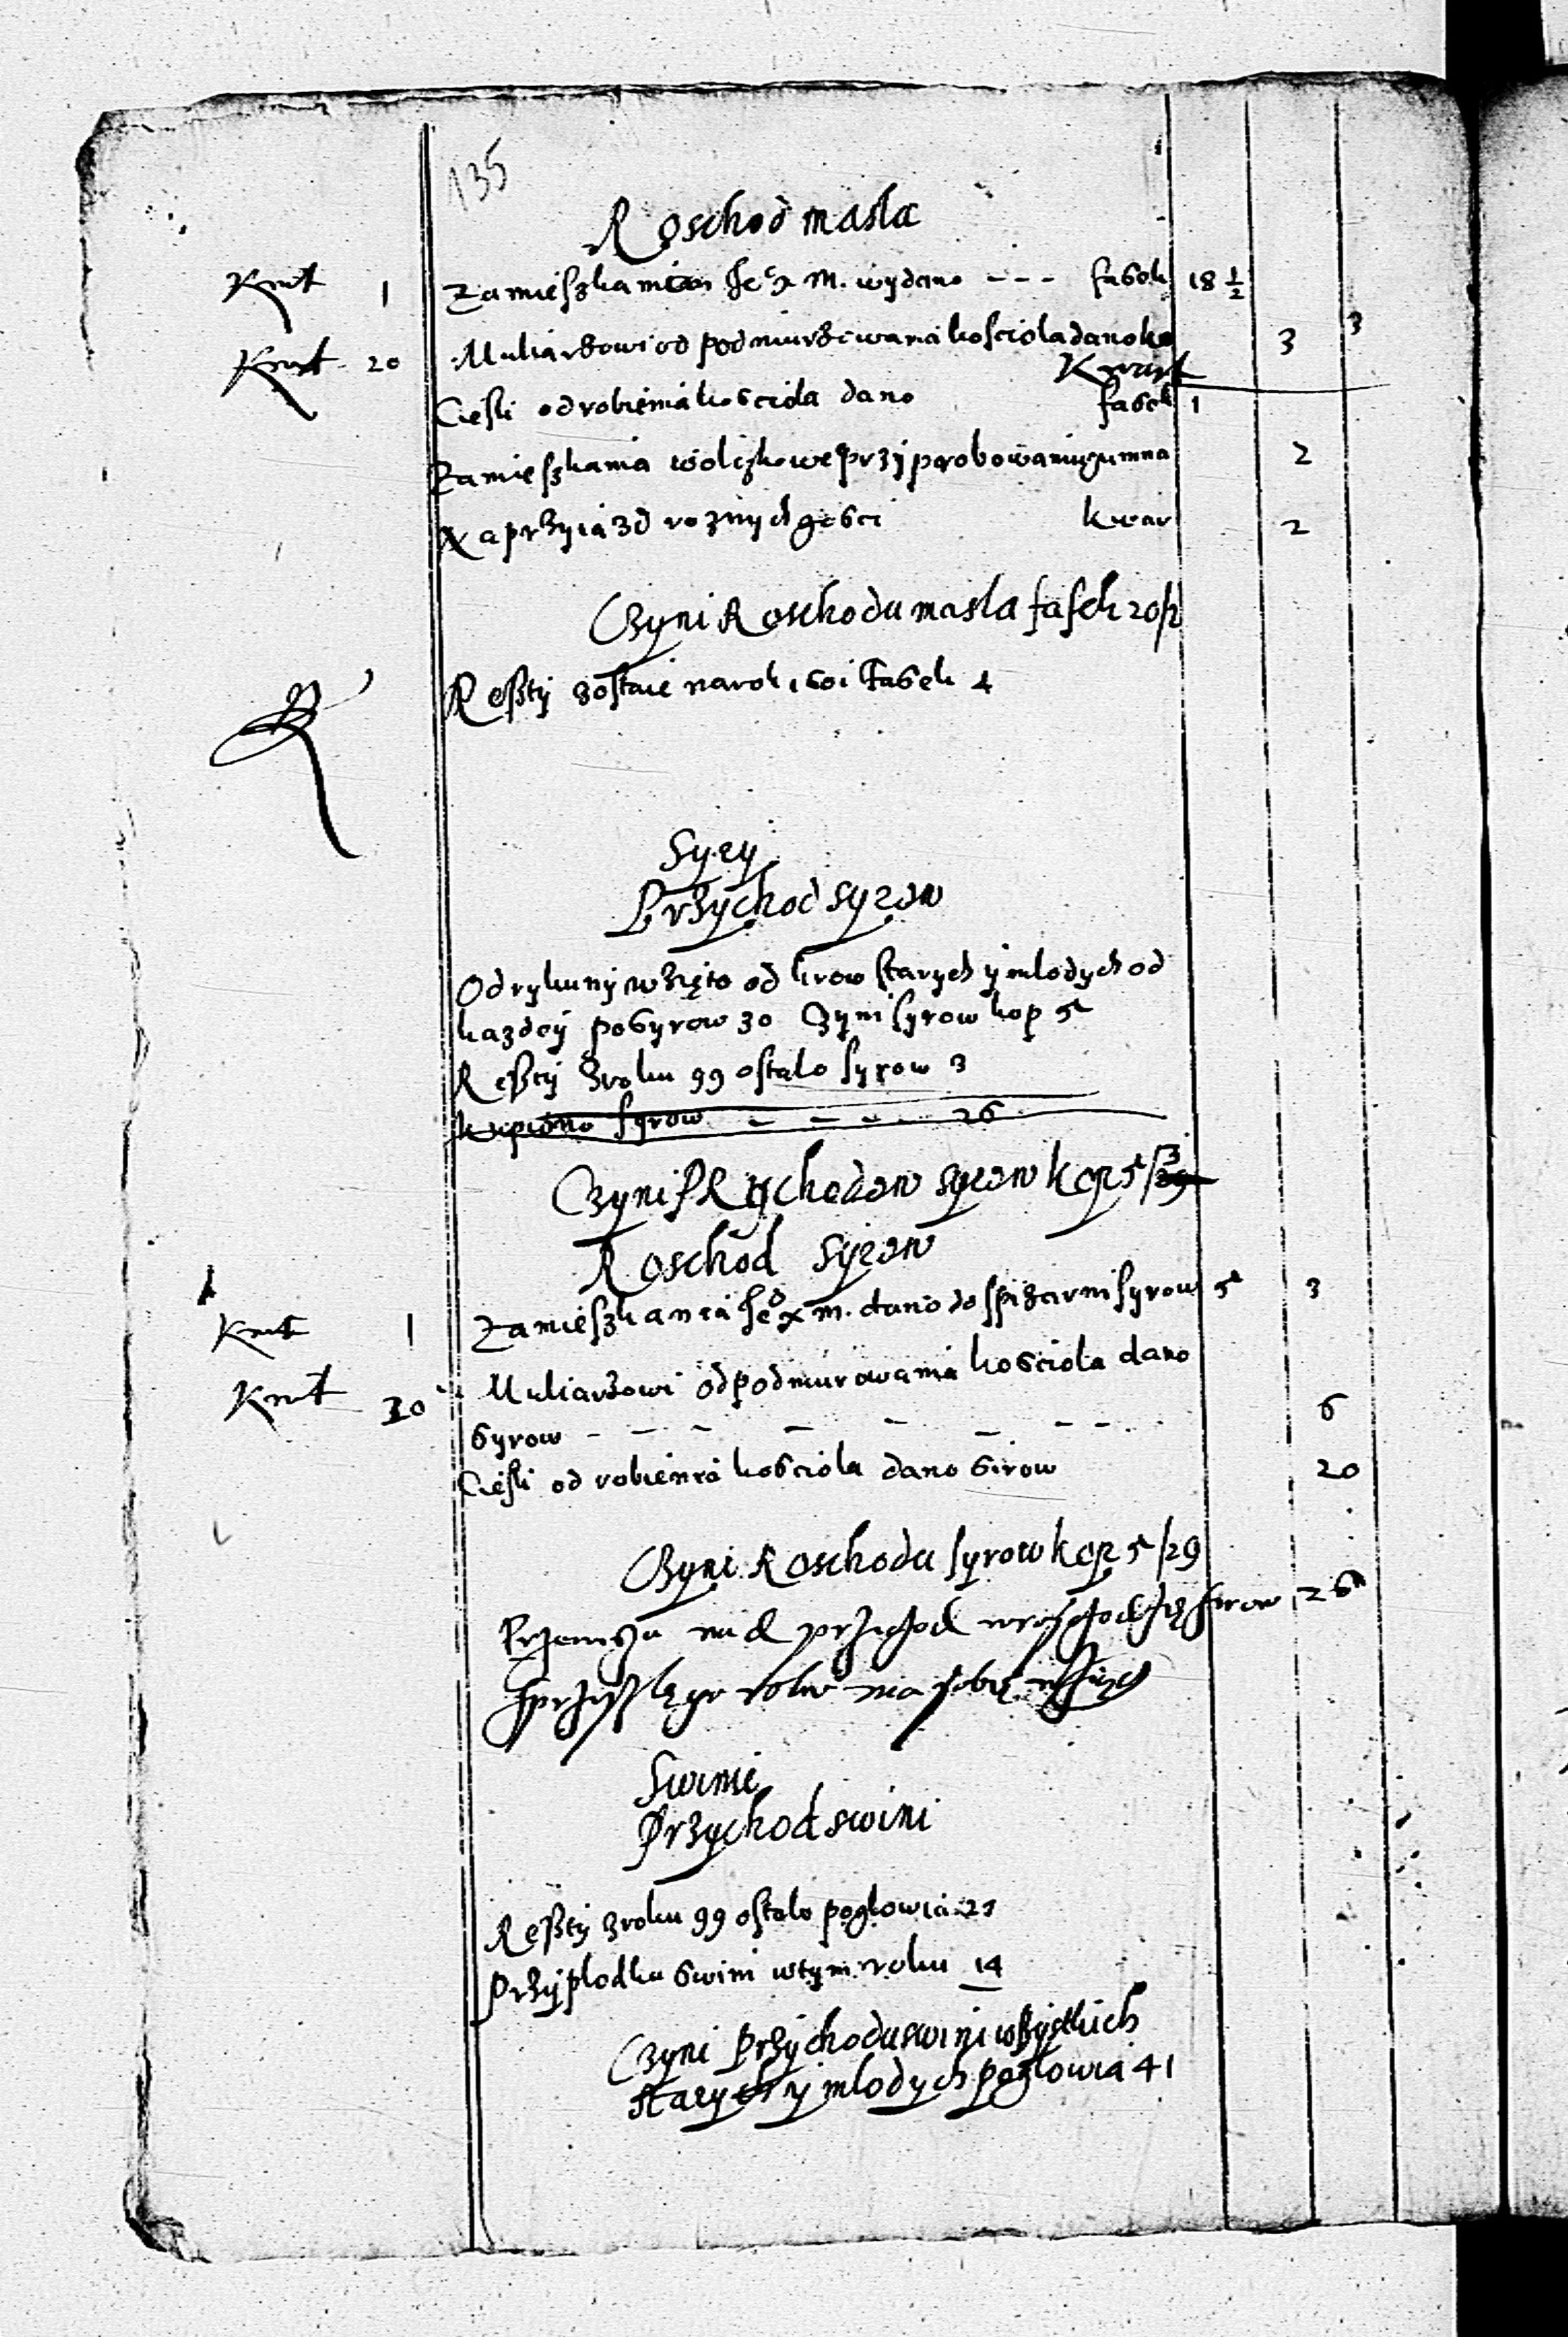 135
Roschod masla
Kwit 1 Zamieszkania Je° X M. wydano - - - faßek 18 ½
Muliarzowi od podmurzowania kosciola dano 3 3
Kwit 20 Kwart
Ciesli od robienia kosciola dano faßek 1
Zamieszkania przy probowaniu gumna 2
Na przyiazd roznych gosci kwar 2
Czyni Roschodu masla fasek 20/2
Reszty zostaie na rok faßek 4
Syry
Przychod syrow
Od rykuny wzięto od krow starych y mlodych od
kazdey po syrow 30 Czyni syrow kop 5
Reszty z roku 99 ostalo syrow 3
kupiono syrow - - - - 26
Czyni Przychodow syrow kop 5/3
Roschod syrow
Kwit 1 Zamieszkania Je° X m. dano do spizarni syrow 5 3
Kwit 30 Muliarzowi od podmurowania kosciola dano
syrow - - - - - - - 6
Ciesli od robienia kosciola dano sirow 20
Czyni Roschodu syrow kop 5/29
nad przychod syrow 26
roku na
Swinie
Przychod swini
Reszty z roku 99 ostalo poglowia 27
Przyplodku swini w tym roku 14
Czyni Przychodu swini wszystkich
starych y mlodych poglowia 41